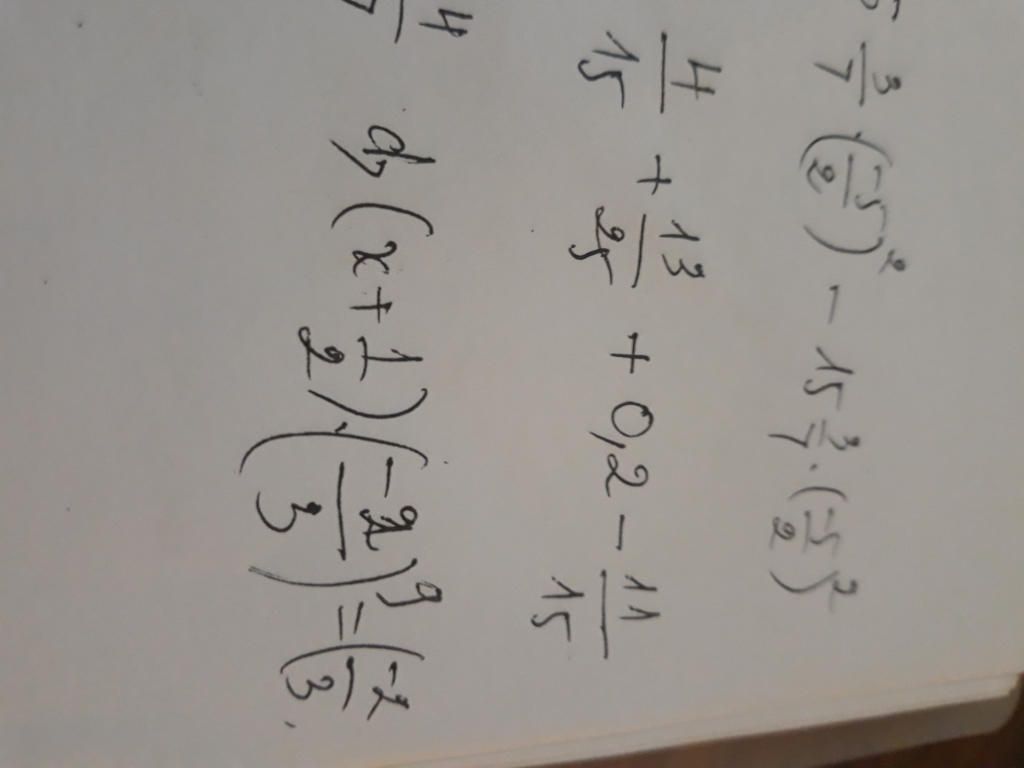 5 3/7 (-5/2)² - 15 2/7 · (-5/2)²
4/15 + 13/25 + 0,2 - 11/15
4
d, (x + 1/2) · (-2/3)⁹ = (-2/3)